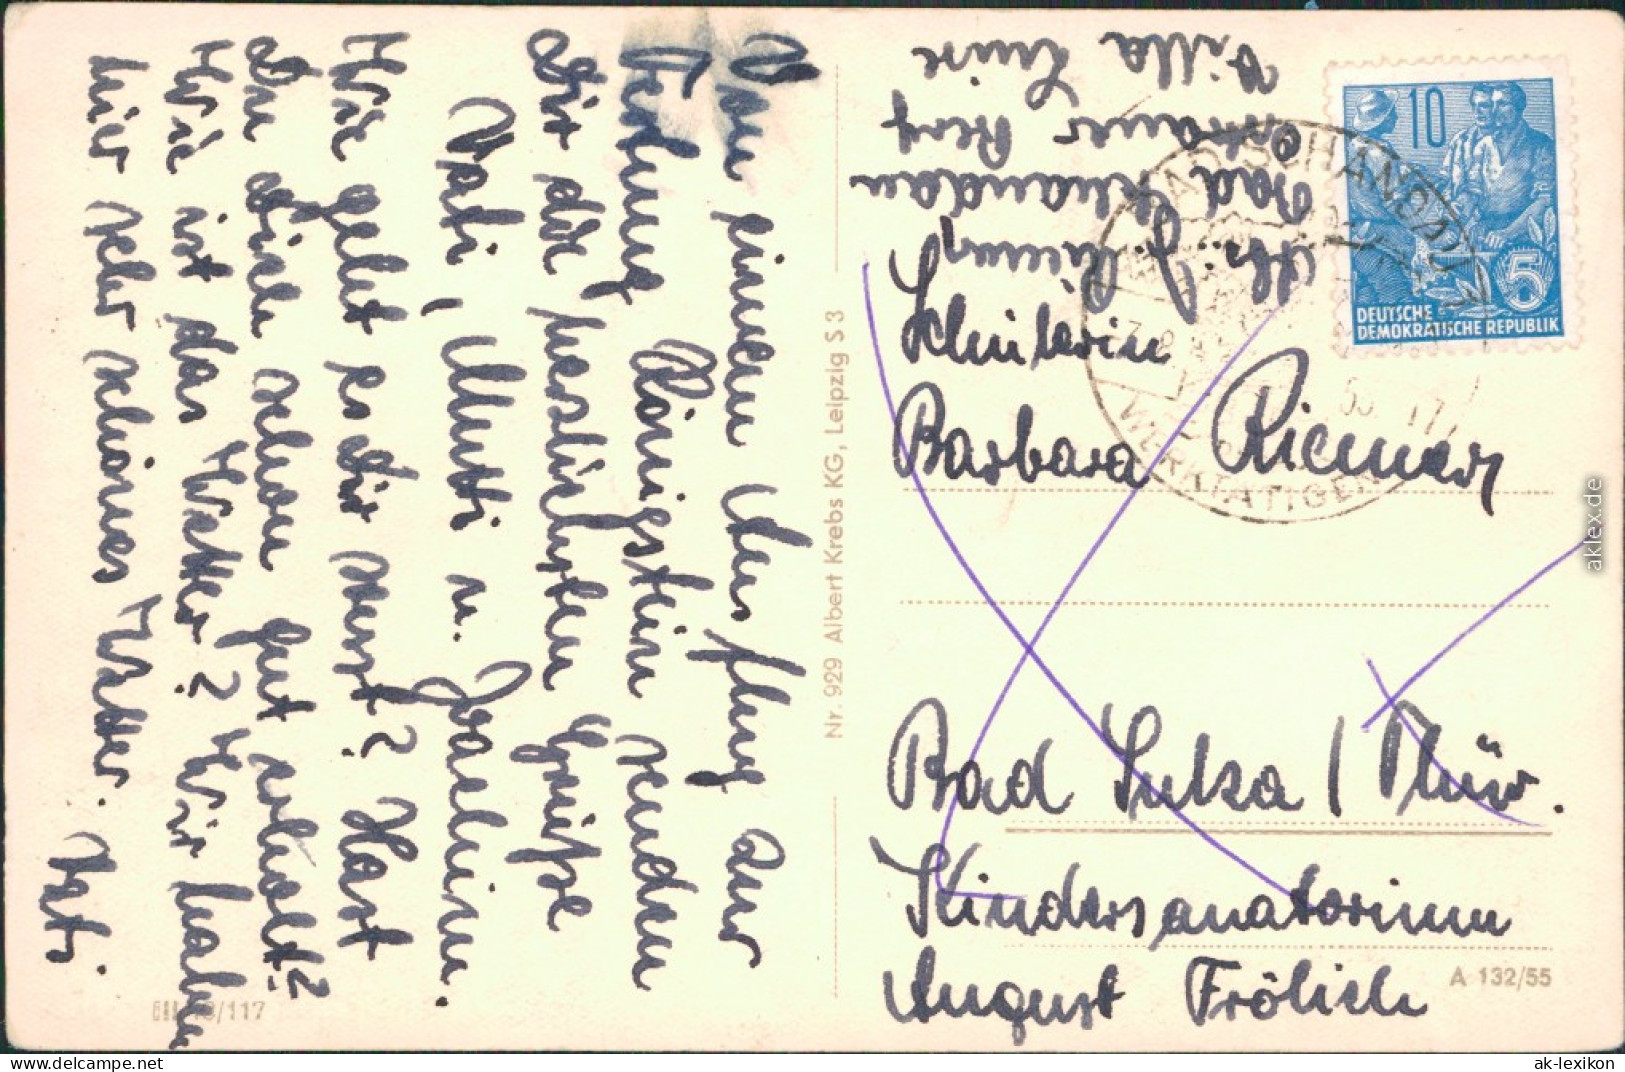 Von einem Ausflug zur
Festung Königstein senden
Dir die herzlichsten Grüße
Vati, Mutti u. Joachim.
Wie geht es Dir sonst? Hast
Du Dich schon gut erholt?
Wie ist das Wetter? Wir haben
hier sehr schönes Wetter.
Vati.
Nr. 929 Albert Krebs KG, Leipzig S 3
Abs.: J. Riemer,
Bad Schandau
Ostrauer Berg
Villa Luise
10
5
DEUTSCHE
DEMOKRATISCHE REPUBLIK
BAD SCHANDAU
WERKTÄTIGEN
Schülerin
Barbara Riemer
Bad Sulza / Thür.
Kindersanatorium
August Frölich
A 132/55
/117
aklex.de
www.delcampe.net
ak-lexikon